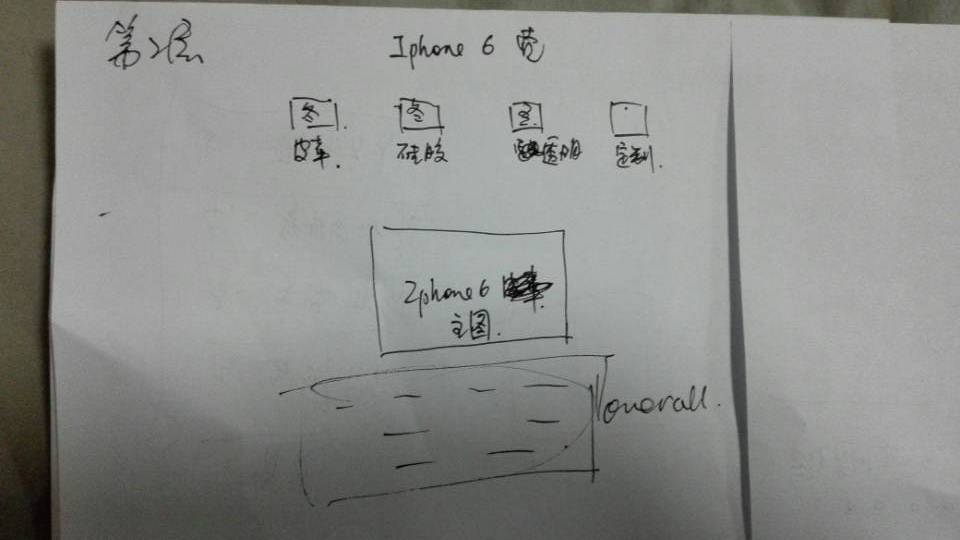 第2层
Iphone 6 壳
图 图 图
皮革. 硅胶 透明 定制.
Iphone 6
主图.
overall.